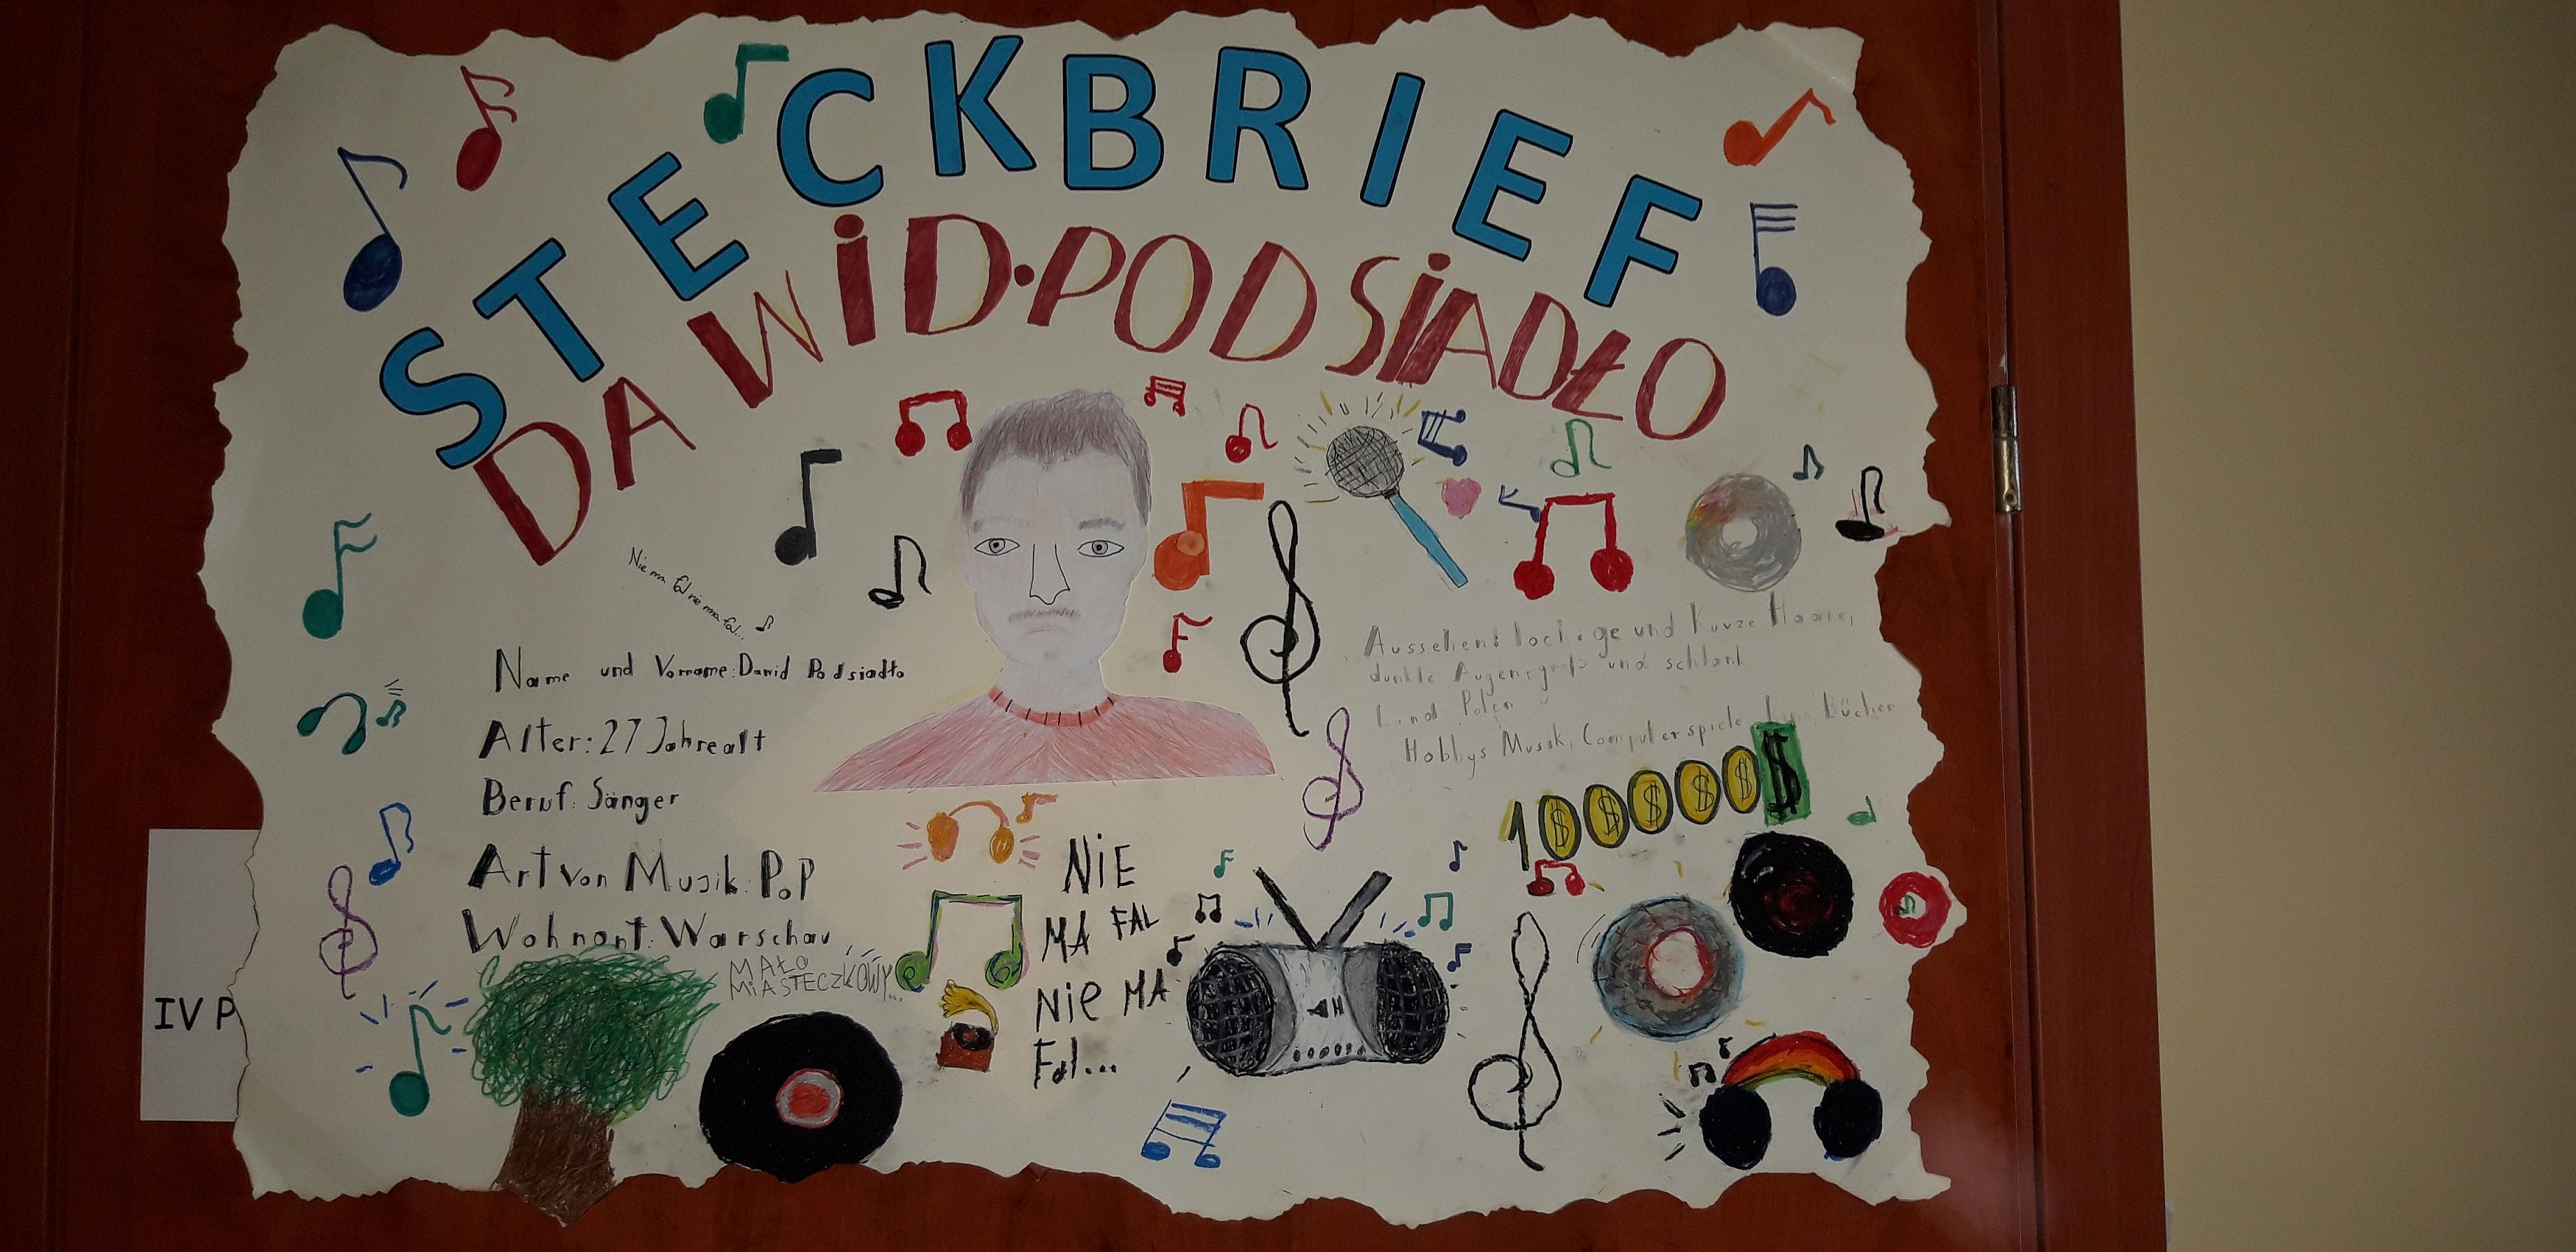 STECKBRIEF
DAWID·PODSIADŁO
Nie ma fal nie ma fal...
Name und Vorname: Dawid Podsiadło
Alter: 27 Jahre alt
Beruf: Sänger
Art von Musik: POP
Wohnort: Warschau
MAŁO
MIASTECZKOWY...
NIE
MA FAL
NIE MA
Fal...
Aussehen: lockige und kurze Haare,
dunkle Augen, groß und schlank
Land Polen
Hobbys Musik, Computerspiele, Bücher
100000$
IV P